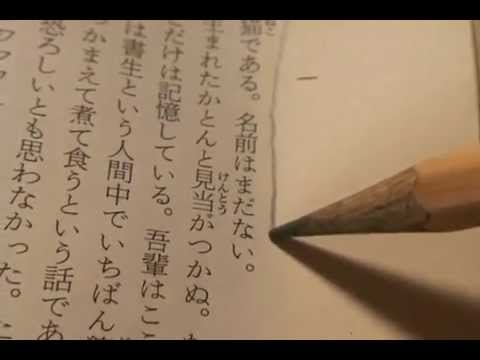 一
猫である。名前はまだない。
ねこ
生まれたかとんと見当がつかぬ。
けんとう
とだけは記憶している。吾輩はここ
は書生という人間中でいちばん
つかまえて煮て食うという話であ
恐ろしいとも思わなかった。